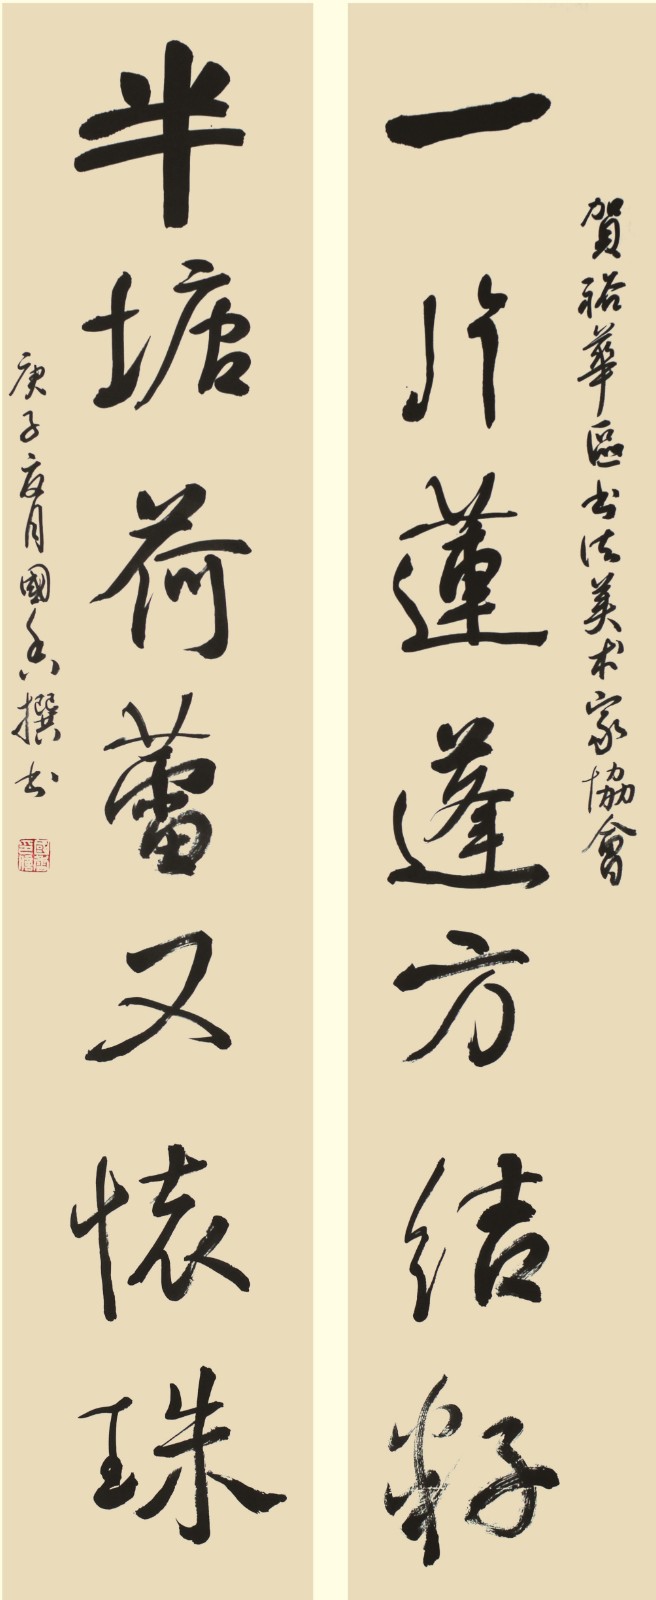 賀裕華區书法美术家協會
一片蓮蓬方結籽
半塘荷蕾又懷珠
庚子夏月國撰书